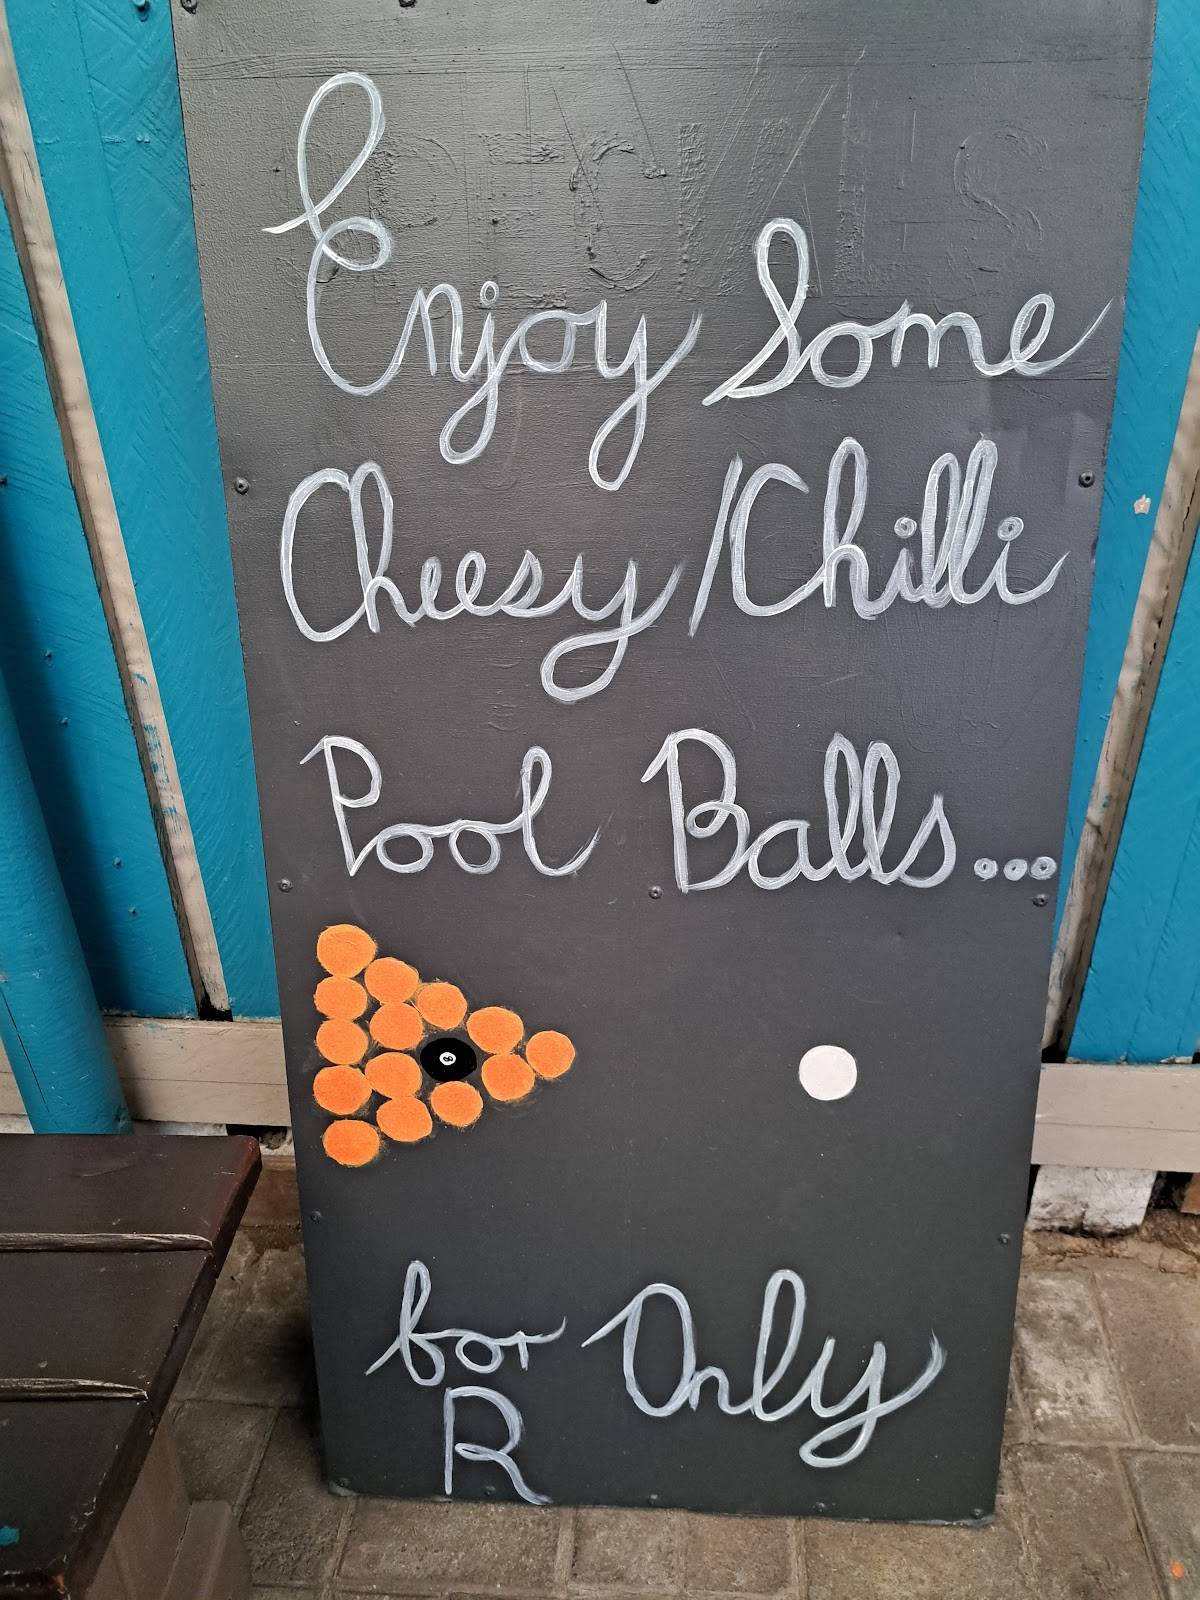 SPECIALS
Enjoy Some
Cheesy/Chilli
Pool Balls...
8
for Only
R